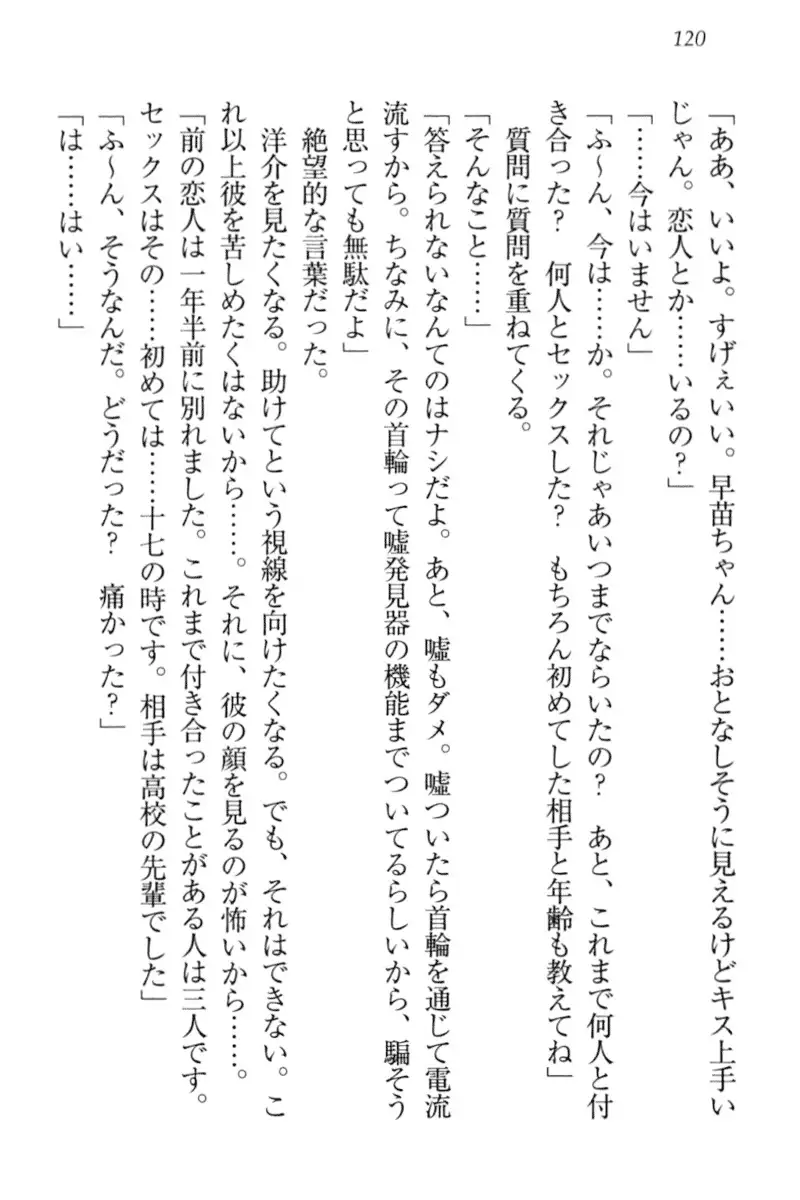 120
「ああ、いいよ。すげぇいい。早苗ちゃん……おとなしそうに見えるけどキス上手い
じゃん。恋人とか……いるの？」
「……今はいません」
「ふ～ん、今は……か。それじゃあいつまでならいたの？　あと、これまで何人と付
き合った？　何人とセックスした？　もちろん初めてした相手と年齢も教えてね」
質問に質問を重ねてくる。
「そんなこと……」
「答えられないなんてのはナシだよ。あと、嘘もダメ。嘘ついたら首輪を通じて電流
流すから。ちなみに、その首輪って嘘発見器の機能までついてるらしいから、騙そう
と思っても無駄だよ」
絶望的な言葉だった。
洋介を見たくなる。助けてという視線を向けたくなる。でも、それはできない。こ
れ以上彼を苦しめたくはないから……。それに、彼の顔を見るのが怖いから……。
「前の恋人は一年半前に別れました。これまで付き合ったことがある人は三人です。
セックスはその……初めては……十七の時です。相手は高校の先輩でした」
「ふ～ん、そうなんだ。どうだった？　痛かった？」
「は……はい……」